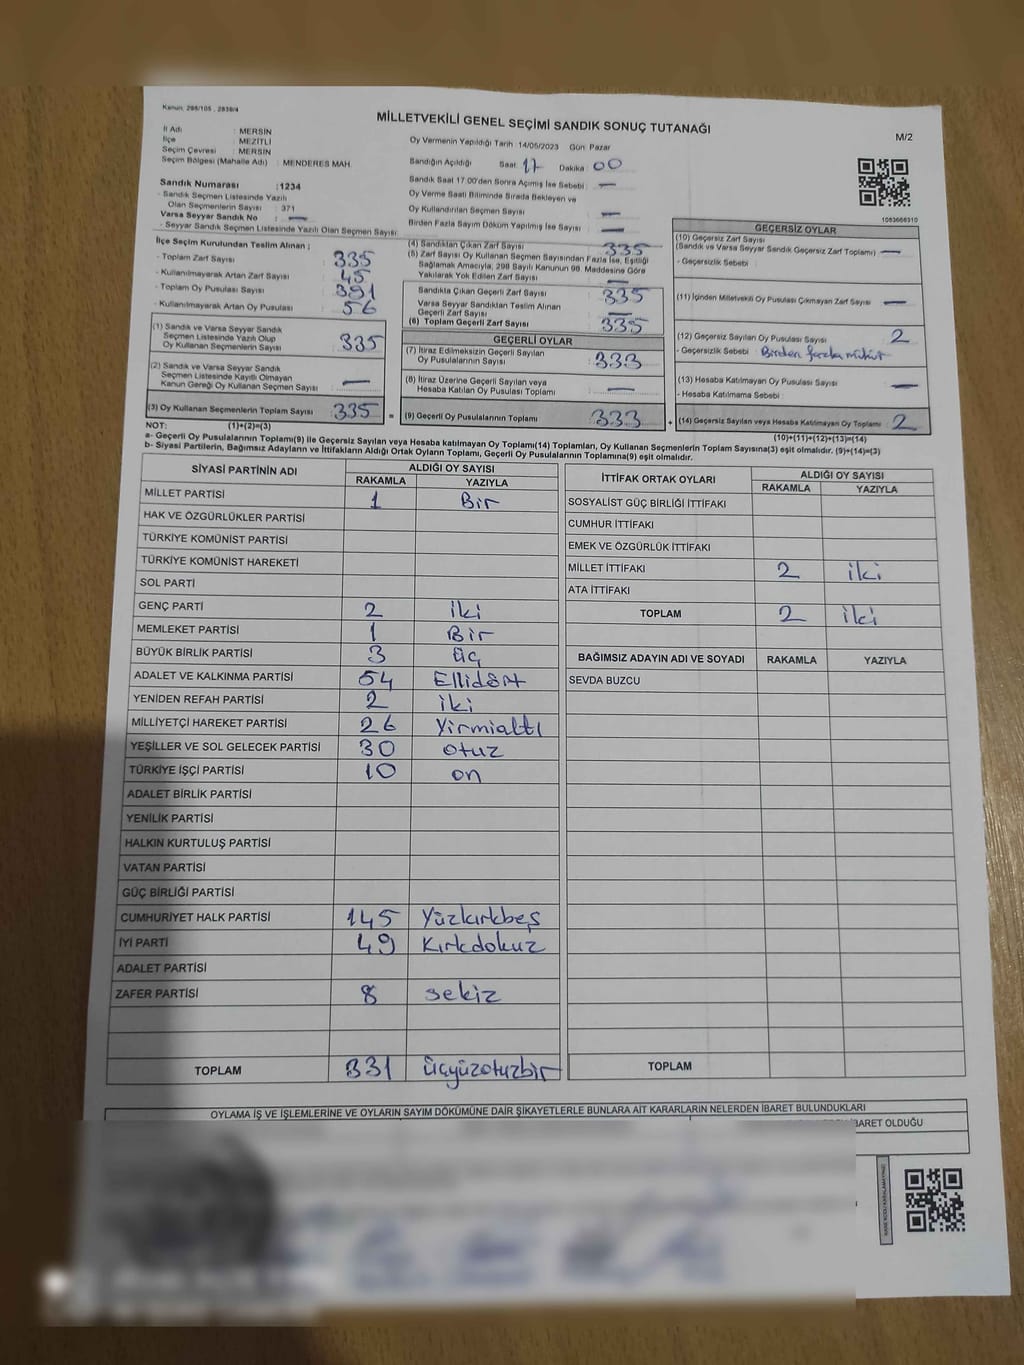 Kanun: 298/105 , 2839/4
MİLLETVEKİLİ GENEL SEÇİMİ SANDIK SONUÇ TUTANAĞI
M/2
İl Adı : MERSİN
İlçe : MEZİTLİ
Seçim Çevresi : MERSİN
Seçim Bölgesi (Mahalle Adı) : MENDERES MAH.
Oy Vermenin Yapıldığı Tarih 14/05/2023 Gün Pazar
Sandığın Açıldığı Saat 17 Dakika 00
Sandık Saat 17:00'den Sonra Açımış İse Sebebi : —
Oy Verme Saati Bitiminde Sırada Bekleyen ve
Oy Kullandırılan Seçmen Sayısı : —
Birden Fazla Sayım Döküm Yapılmış İse Sayısı : —
Sandık Numarası : 1234
- Sandık Seçmen Listesinde Yazılı
Olan Seçmenlerin Sayısı : 371
Varsa Seyyar Sandık No : —
- Seyyar Sandık Seçmen Listesinde Yazılı Olan Seçmen Sayısı:
İlçe Seçim Kurulundan Teslim Alınan ;
- Toplam Zarf Sayısı : 335
- Kullanılmayarak Artan Zarf Sayısı : 45
- Toplam Oy Pusulası Sayısı : 391
- Kullanılmayarak Artan Oy Pusulası : 56
(1) Sandık ve Varsa Seyyar Sandık
Seçmen Listesinde Yazılı Olup
Oy Kullanan Seçmenlerin Sayısı : 335
(2) Sandık ve Varsa Seyyar Sandık
Seçmen Listesinde Kayıtlı Olmayan
Kanun Gereği Oy Kullanan Seçmen Sayısı : —
(3) Oy Kullanan Seçmenlerin Toplam Sayısı : 335 =
(4) Sandıktan Çıkan Zarf Sayısı : 335
(5) Zarf Sayısı Oy Kullanan Seçmen Sayısından Fazla İse, Eşitliği
Sağlamak Amacıyla, 298 Sayılı Kanunun 98. Maddesine Göre
Yakılarak Yok Edilen Zarf Sayısı : —
Sandıkla Çıkan Geçerli Zarf Sayısı : 335
Varsa Seyyar Sandıktan Teslim Alınan
Geçerli Zarf Sayısı : —
(6) Toplam Geçerli Zarf Sayısı : 335
GEÇERLİ OYLAR
(7) İtiraz Edilmeksizin Geçerli Sayılan
Oy Pusulalarının Sayısı : 333
(8) İtiraz Üzerine Geçerli Sayılan veya
Hesaba Katılan Oy Pusulası Toplamı : —
(9) Geçerli Oy Pusulalarının Toplamı : 333 +
1083668310
GEÇERSİZ OYLAR
(10) Geçersiz Zarf Sayısı
(Sandık ve Varsa Seyyar Sandık Geçersiz Zarf Toplamı) : —
- Geçersizlik Sebebi :
(11) İçinden Milletvekili Oy Pusulası Çıkmayan Zarf Sayısı : —
(12) Geçersiz Sayılan Oy Pusulası Sayısı : 2
- Geçersizlik Sebebi : Birden fazla mühür
(13) Hesaba Katılmayan Oy Pusulası Sayısı : —
- Hesaba Katılmama Sebebi :
(14) Geçersiz Sayılan veya Hesaba Katılmayan Oy Toplamı : 2
NOT: (1)+(2)=(3) (10)+(11)+(12)+(13)=(14)
a- Geçerli Oy Pusulalarının Toplamı(9) ile Geçersiz Sayılan veya Hesaba katılmayan Oy Toplamı(14) Toplamları, Oy Kullanan Seçmenlerin Toplam Sayısına(3) eşit olmalıdır. (9)+(14)=(3)
b- Siyasi Partilerin, Bağımsız Adayların ve İttifakların Aldığı Ortak Oyların Toplamı, Geçerli Oy Pusulalarının Toplamına(9) eşit olmalıdır.
SİYASİ PARTİNİN ADI ALDIĞI OY SAYISI
RAKAMLA YAZIYLA
MİLLET PARTİSİ 1 Bir
HAK VE ÖZGÜRLÜKLER PARTİSİ
TÜRKİYE KOMÜNİST PARTİSİ
TÜRKİYE KOMÜNİST HAREKETİ
SOL PARTİ
GENÇ PARTİ 2 iki
MEMLEKET PARTİSİ 1 Bir
BÜYÜK BİRLİK PARTİSİ 3 üç
ADALET VE KALKINMA PARTİSİ 54 Ellidört
YENİDEN REFAH PARTİSİ 2 iki
MİLLİYETÇİ HAREKET PARTİSİ 26 Yirmialtı
YEŞİLLER VE SOL GELECEK PARTİSİ 30 otuz
TÜRKİYE İŞÇİ PARTİSİ 10 on
ADALET BİRLİK PARTİSİ
YENİLİK PARTİSİ
HALKIN KURTULUŞ PARTİSİ
VATAN PARTİSİ
GÜÇ BİRLİĞİ PARTİSİ
CUMHURİYET HALK PARTİSİ 145 Yüzkırkbeş
İYİ PARTİ 49 Kırkdokuz
ADALET PARTİSİ
ZAFER PARTİSİ 8 sekiz
TOPLAM 331 üçyüzotuzbir
İTTİFAK ORTAK OYLARI ALDIĞI OY SAYISI
RAKAMLA YAZIYLA
SOSYALİST GÜÇ BİRLİĞİ İTTİFAKI
CUMHUR İTTİFAKI
EMEK VE ÖZGÜRLÜK İTTİFAKI
MİLLET İTTİFAKI 2 iki
ATA İTTİFAKI
TOPLAM 2 iki
BAĞIMSIZ ADAYIN ADI VE SOYADI RAKAMLA YAZIYLA
SEVDA BUZCU
TOPLAM
OYLAMA İŞ VE İŞLEMLERİNE VE OYLARIN SAYIM DÖKÜMÜNE DAİR ŞİKAYETLERLE BUNLARA AİT KARARLARIN NELERDEN İBARET BULUNDUKLARI
İBARET OLDUĞU